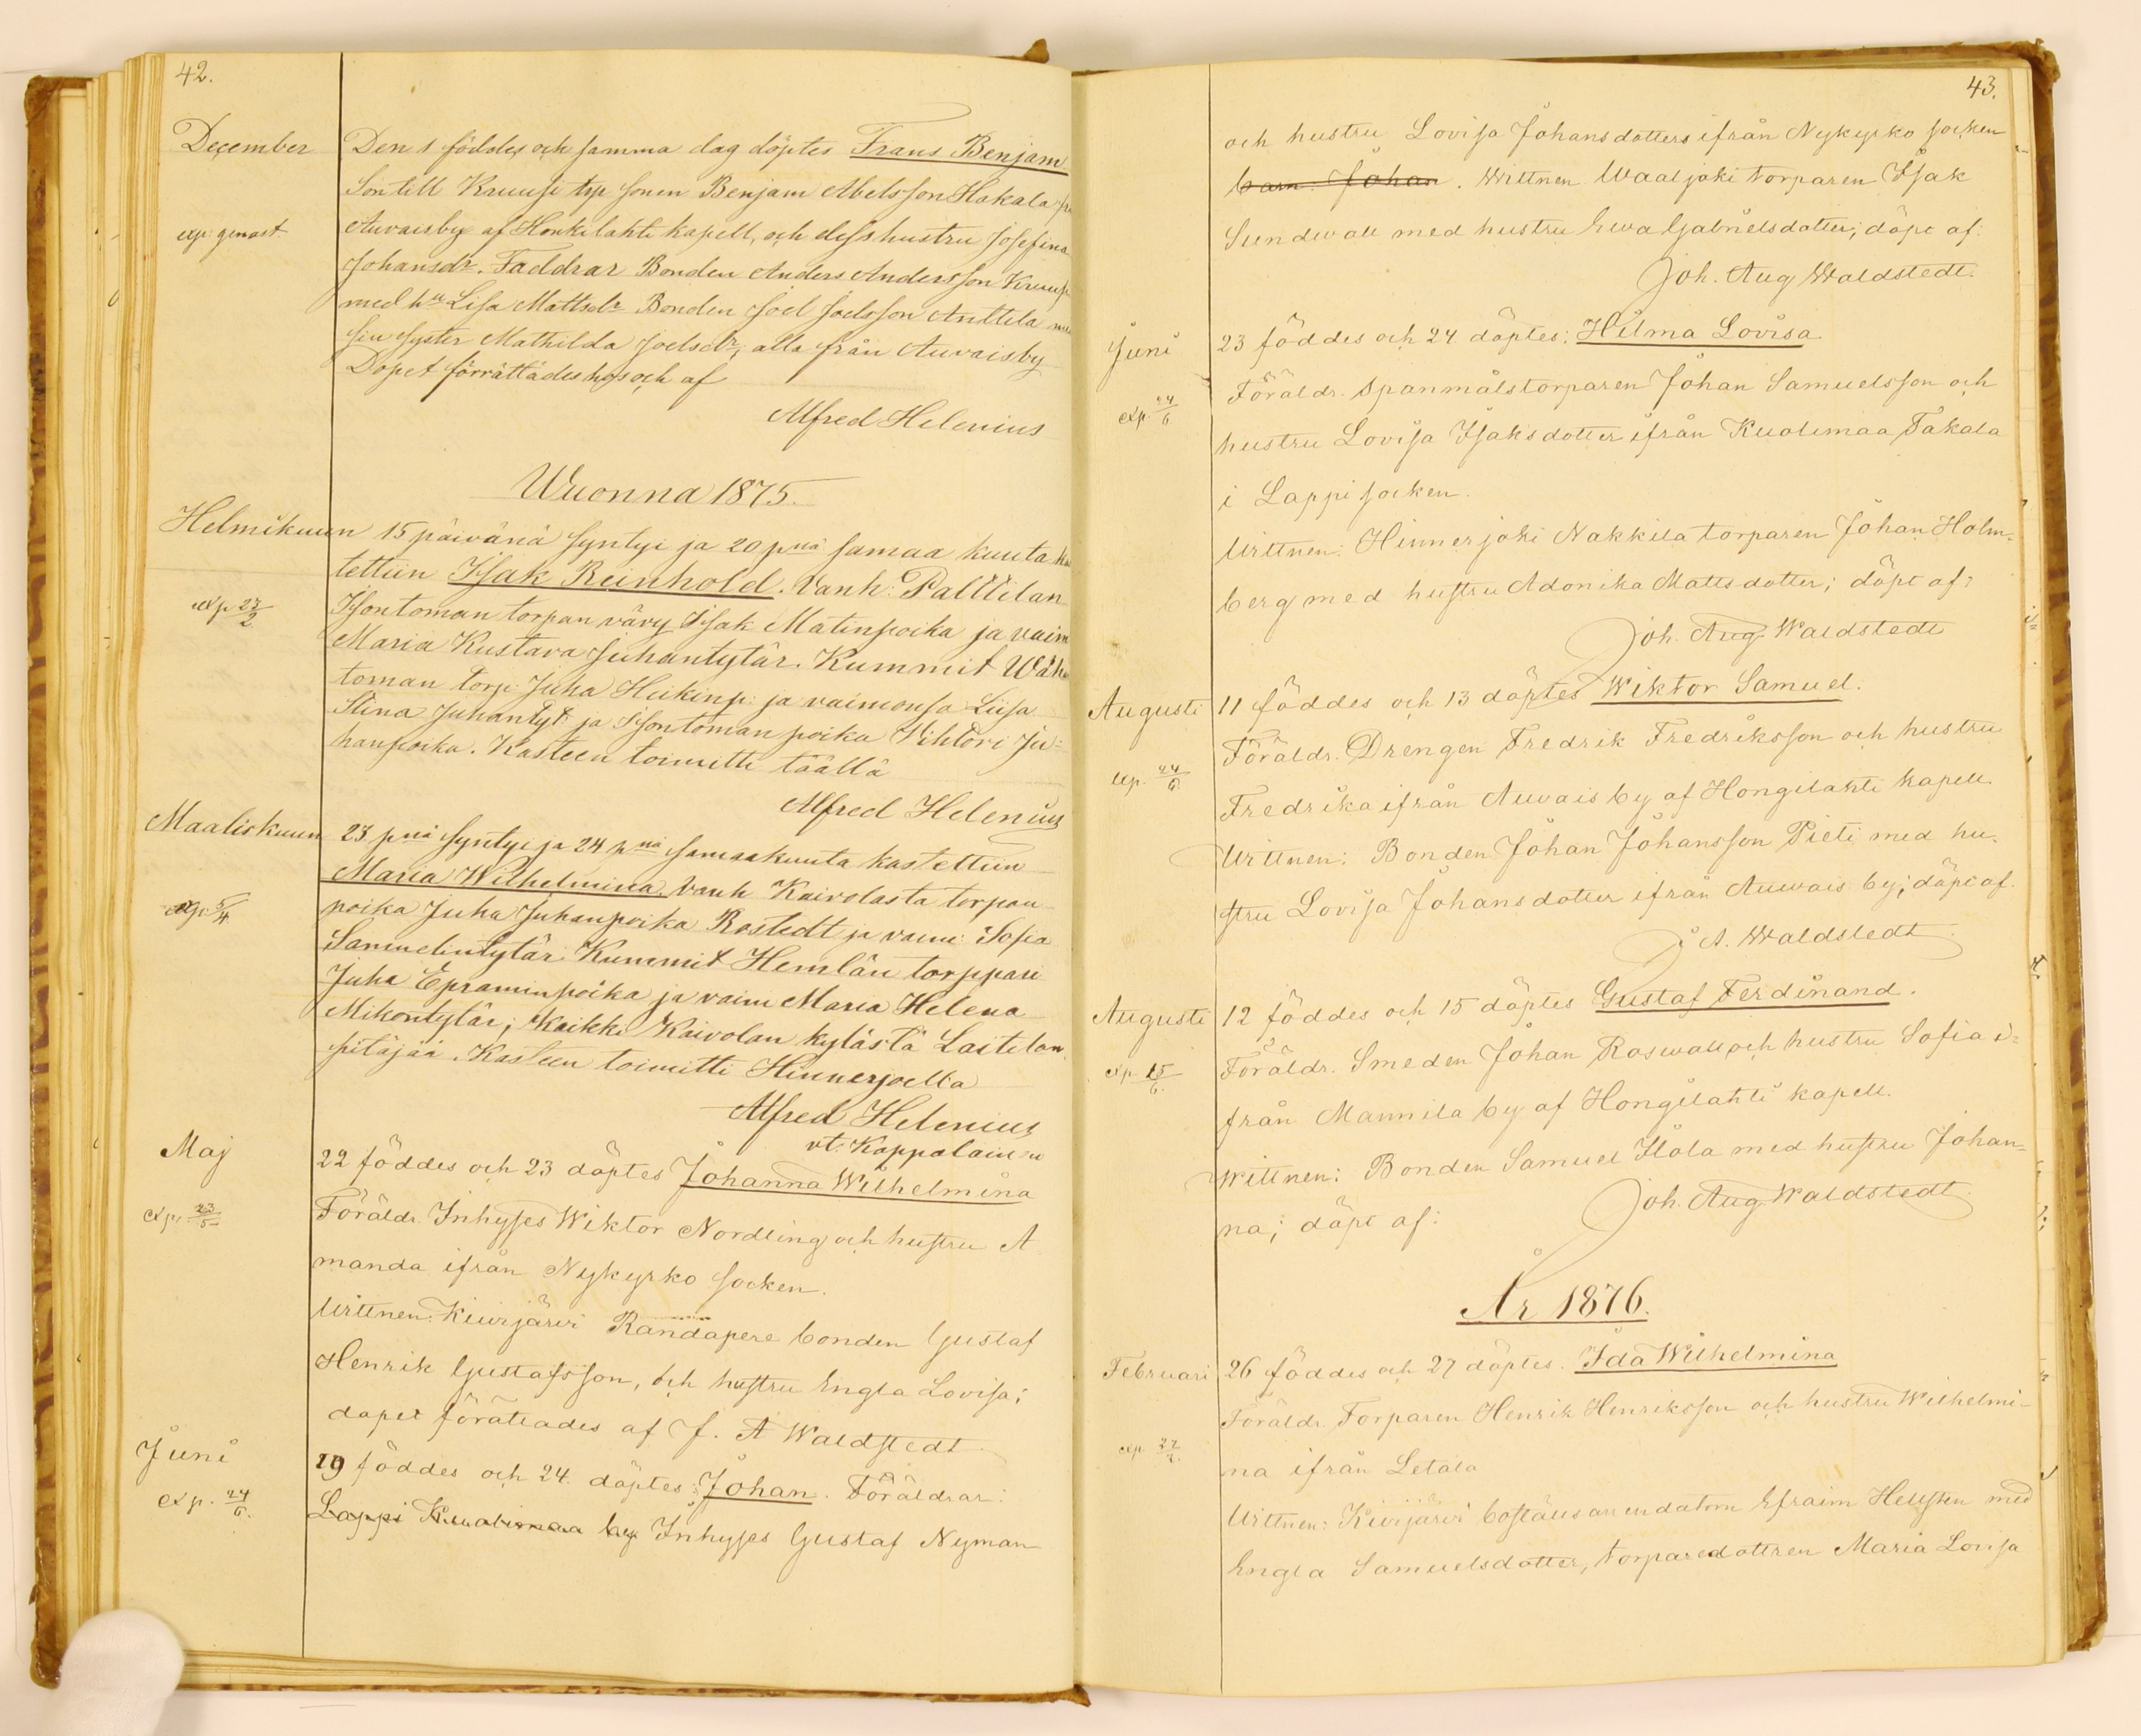 42.
December Den 1 föddes och samma dag döptes Frans Benjam
Son till Kruusi trp sonen Benjam Abelsson Hakala
exp: genast. Auvaisby af Honkilahti kapell, och dess hustru Josefina
Johansdr. Faddrar Bonden Anders Andersson Kruus
med hu Lisa Mattsdr Bonden Joel Joelsson Anttila
sin syster Mathilda Joelsdr, alla från Auvaisby
Dopet förrättades hos och af
Alfred Helenius
Wuonna 1875.
Helmikuun 15 päivänä syntyi ja 20 pnä samaa kuuta
tettiin Isak Reinhold. Vanh: Pallilan
exp 27/2 Isontoman torpan vävy Isak Matinpoika ja vaim
Maria Kustava Juhantytär. Kummit Wäh
toman torp: Juha Heikinp: ja vaimonsa Liisa
Stina Juhantyt: ja Isontoman poika Vihtori Ju-
hanpoika. Kasteen toimitti täällä
Alfred Helenius
Maaliskuun 23 pnä syntyi ja 24 pnä samaakuuta kastettiin
Maria Wilhelmina. Vanh Kaivolasta torpan
exp. 5/4. poika Juha Juhanpoika Rostedt ja vaim: Sofia
Samuelintytär. Kummit Hemlän torppari
Juha Epraminpoika ja vaim Maria Helena
Mikontytär; Kaikki Kaivolan kylästä Laitilan
pitäjää. Kasteen toimitti Hinnerjoella
Alfred Helenius
vt. Kappalainen
Maj 22 föddes och 23 döptes Johanna Wilhelmina
exp. 23/5 Föräldr. Inhyses Wiktor Nordling och hustru A
manda ifrån Nykyrko socken.
Wittnen: Kiwijärwi Randapere bonden Gustaf
Henrik Gustafsson, och hustru Engla Lovisa;
dopet förättades af J. A Waldstedt
Juni 19 föddes och 24. döptes: Johan. Föräldrar:
exp. 24/6. Lappi Kuolimaa by Inhyses Gustaf Nyman
43.
och hustru Lovisa Johansdotters ifrån Nykyrko socken
barn: Johan. Wittnen Waaljoki torparen Isak
Sundwall med hustru Ewa Gabrielsdotter; döpt af:
Joh. Aug Waldstedt.
Juni 23 föddes och 24 döptes: Hilma Lovisa
exp. 24/6 Föräldr. Spanmålstorparen Johan Samuelsson och
hustru Lovisa Isaksdotter ifrån Kuolimaa Takala
i Lappi socken.
Wittnen: Hinnerjoki Nakkila torparen Johan Holm-
berg med hustru Adonika Mattsdotter; döpt af:
Joh. Aug. Waldstedt
Augusti 11 föddes och 13 döptes Wiktor Samuel.
exp. 24/6. Föräldr. Drengen Fredrik Fredriksson och hustru
Fredrika ifrån Auvais by af Hongilahti kapell.
Wittnen: Bonden Johan Johansson Pieti med hu-
stru Lovisa Johansdotter ifrån Auwais by; döpt af.
J A. Waldstedt
Augusti 12 föddes och 15 döptes Gustaf Ferdinand.
exp. 15/6. Föräldr. Smeden Johan Roswall och hustru Sofia i-
från Mannila by af Hongilahti kapell.
Wittnen: Bonden Samuel Ilola med hustru Johan-
na; döpt af: Joh. Aug. Waldstedt.
År 1876.
Februari 26 föddes och 27 döptes. Ida Wilhelmina
Föräldr. Torparen Henrik Henriksson och hustru Wilhelmi-
exp. 27/2. na ifrån Letala
Wittnen: Kiwijärwi boställsarendatorn Efraim Hellsten med
Engla Samuelsdotter, torparedottren Maria Lovisa